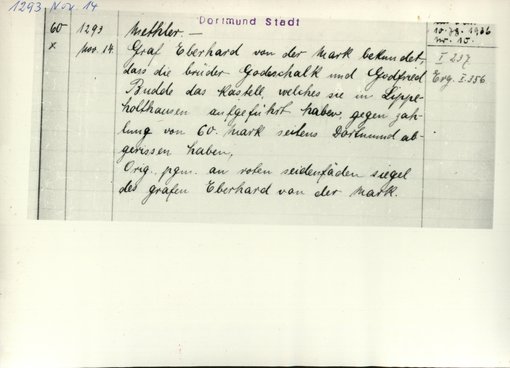 1293 Nov. 14
Dortmund Stadt
60 1293 Methler. —
x Nov. 14. Graf Eberhard von der Mark bekundet,
dass die brüder Godschalk und Godfried
Budde das Kastell, welches sie in Lippe-
holthausen aufgeführt haben, gegen zah-
lung von 60 Mark seitens Dortmund ab-
gerissen haben.
Orig. pgm. an roten seidenfäden siegel
des grafen Eberhard von der Mark.
1936
no. 10.
I 237
Erg. I 356